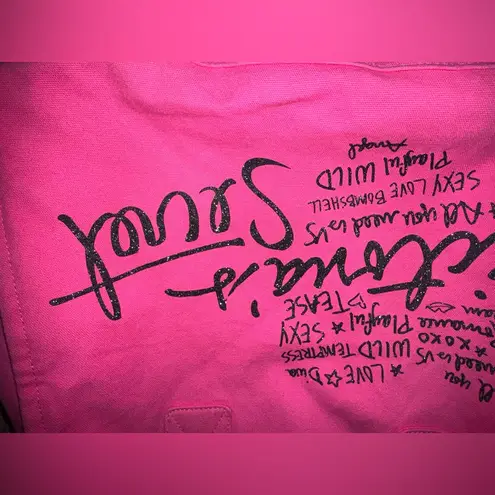 ll you
★ LOVE ☆ Diva
need is VS WILD TEMPTRESS
★ XOXO
omance Playful ★ SEXY
eam ♡ TEASE
ctoria's
Secret
★ All you need is VS
SEXY LOVE BOMBSHELL
Playful WILD
Angel